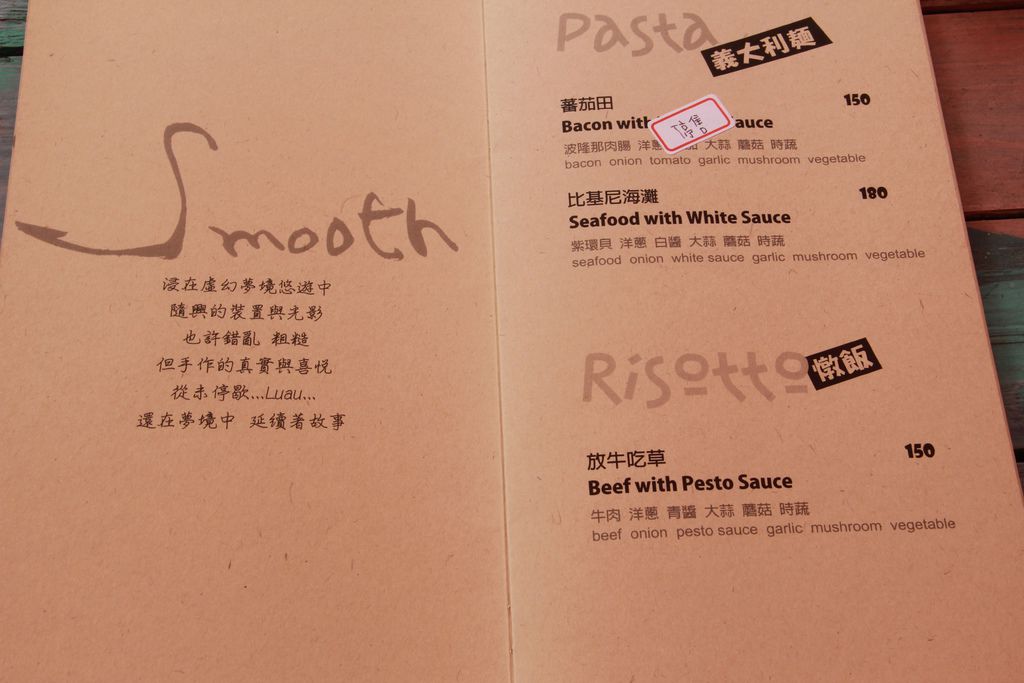 Smooth
浸在虛幻夢境悠遊中
隨興的裝置與光影
也許錯亂 粗糙
但手作的真實與喜悅
從未停歇...Luau...
還在夢境中 延續著故事
Pasta
義大利麵
蕃茄田 150
Bacon with auce
波隆那肉腸 洋蔥 茄 大蒜 蘑菇 時蔬
bacon onion tomato garlic mushroom vegetable
比基尼海灘 180
Seafood with White Sauce
紫環貝 洋蔥 白醬 大蒜 蘑菇 時蔬
seafood onion white sauce garlic mushroom vegetable
Risotto
燉飯
放牛吃草 150
Beef with Pesto Sauce
牛肉 洋蔥 青醬 大蒜 蘑菇 時蔬
beef onion pesto sauce garlic mushroom vegetable